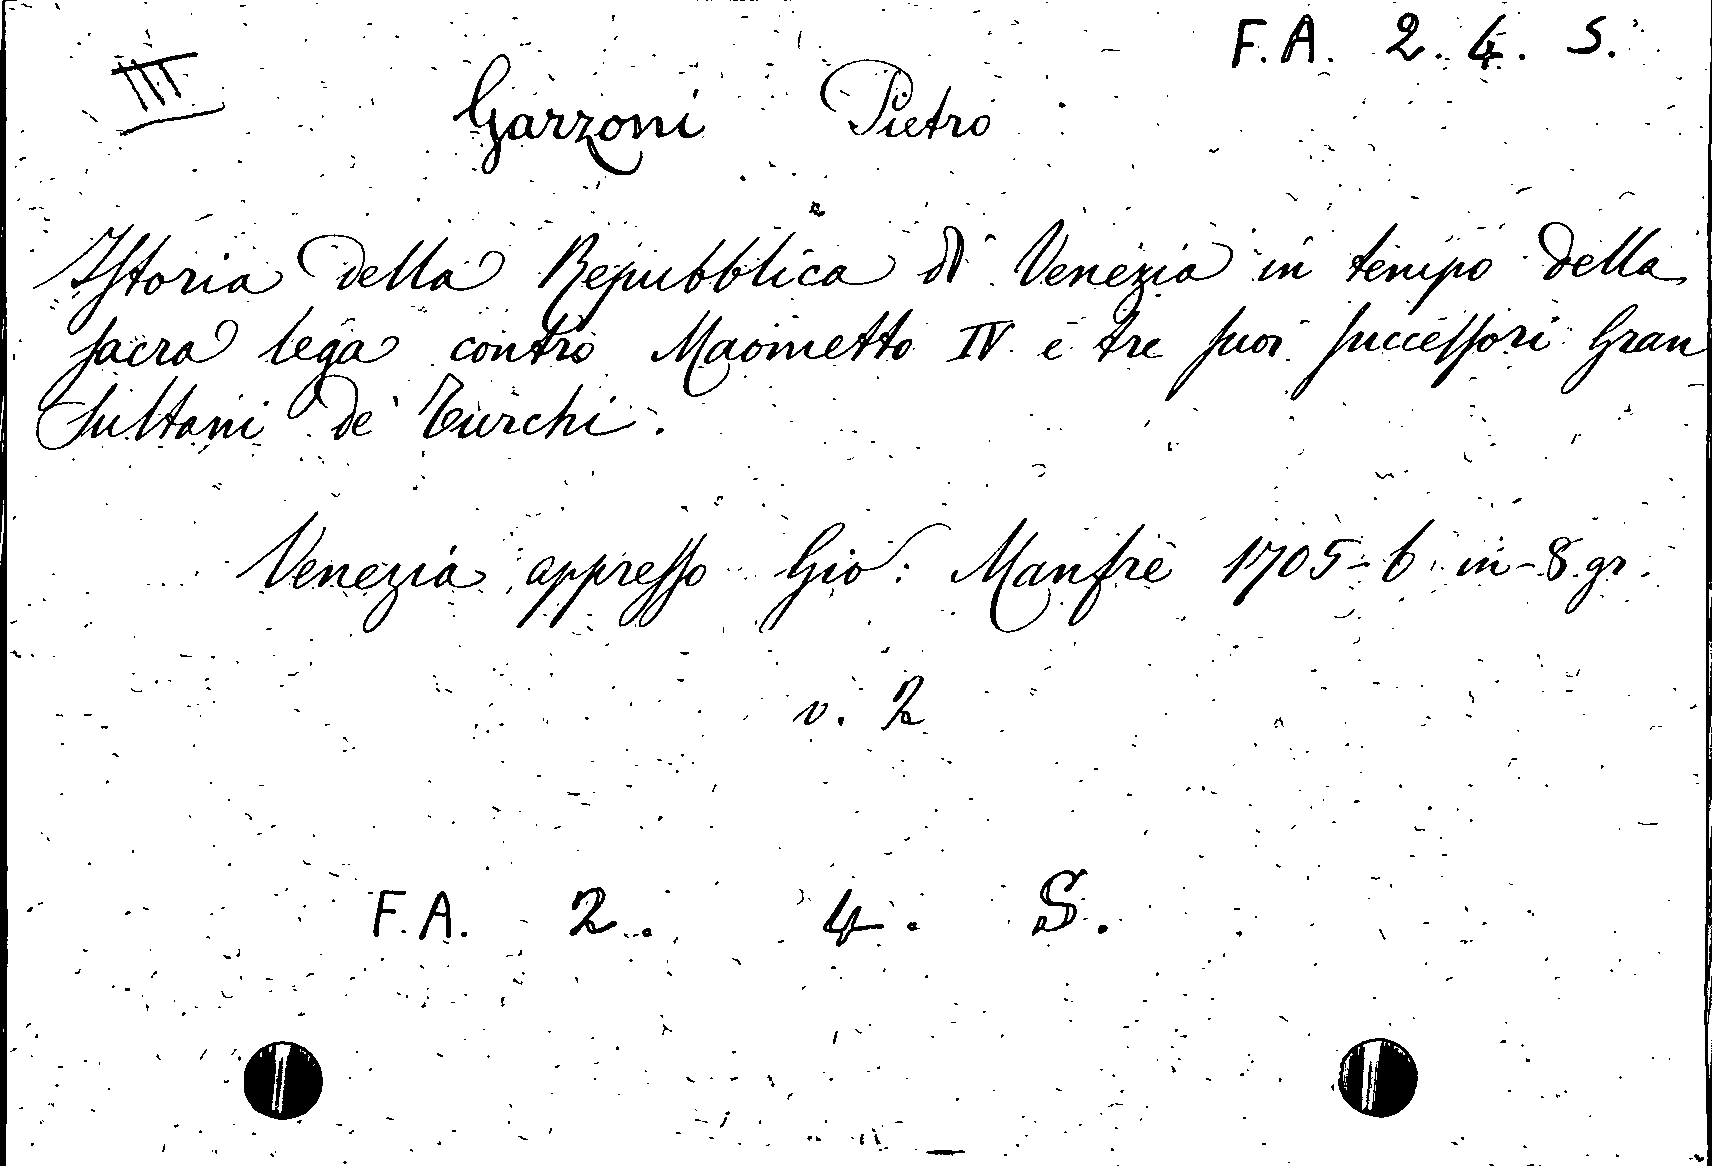 F.A. 2. 4. S.
III
Garzoni Pietro
Istoria della Repubblica di Venezia in tempo della
sacra lega contro Maometto IV e tre suoi successori Gran
Sultani de' Turchi.
Venezia appresso Gio: Manfrè 1705-6 in-8 gr.
v. 2
F.A. 2. 4. S.